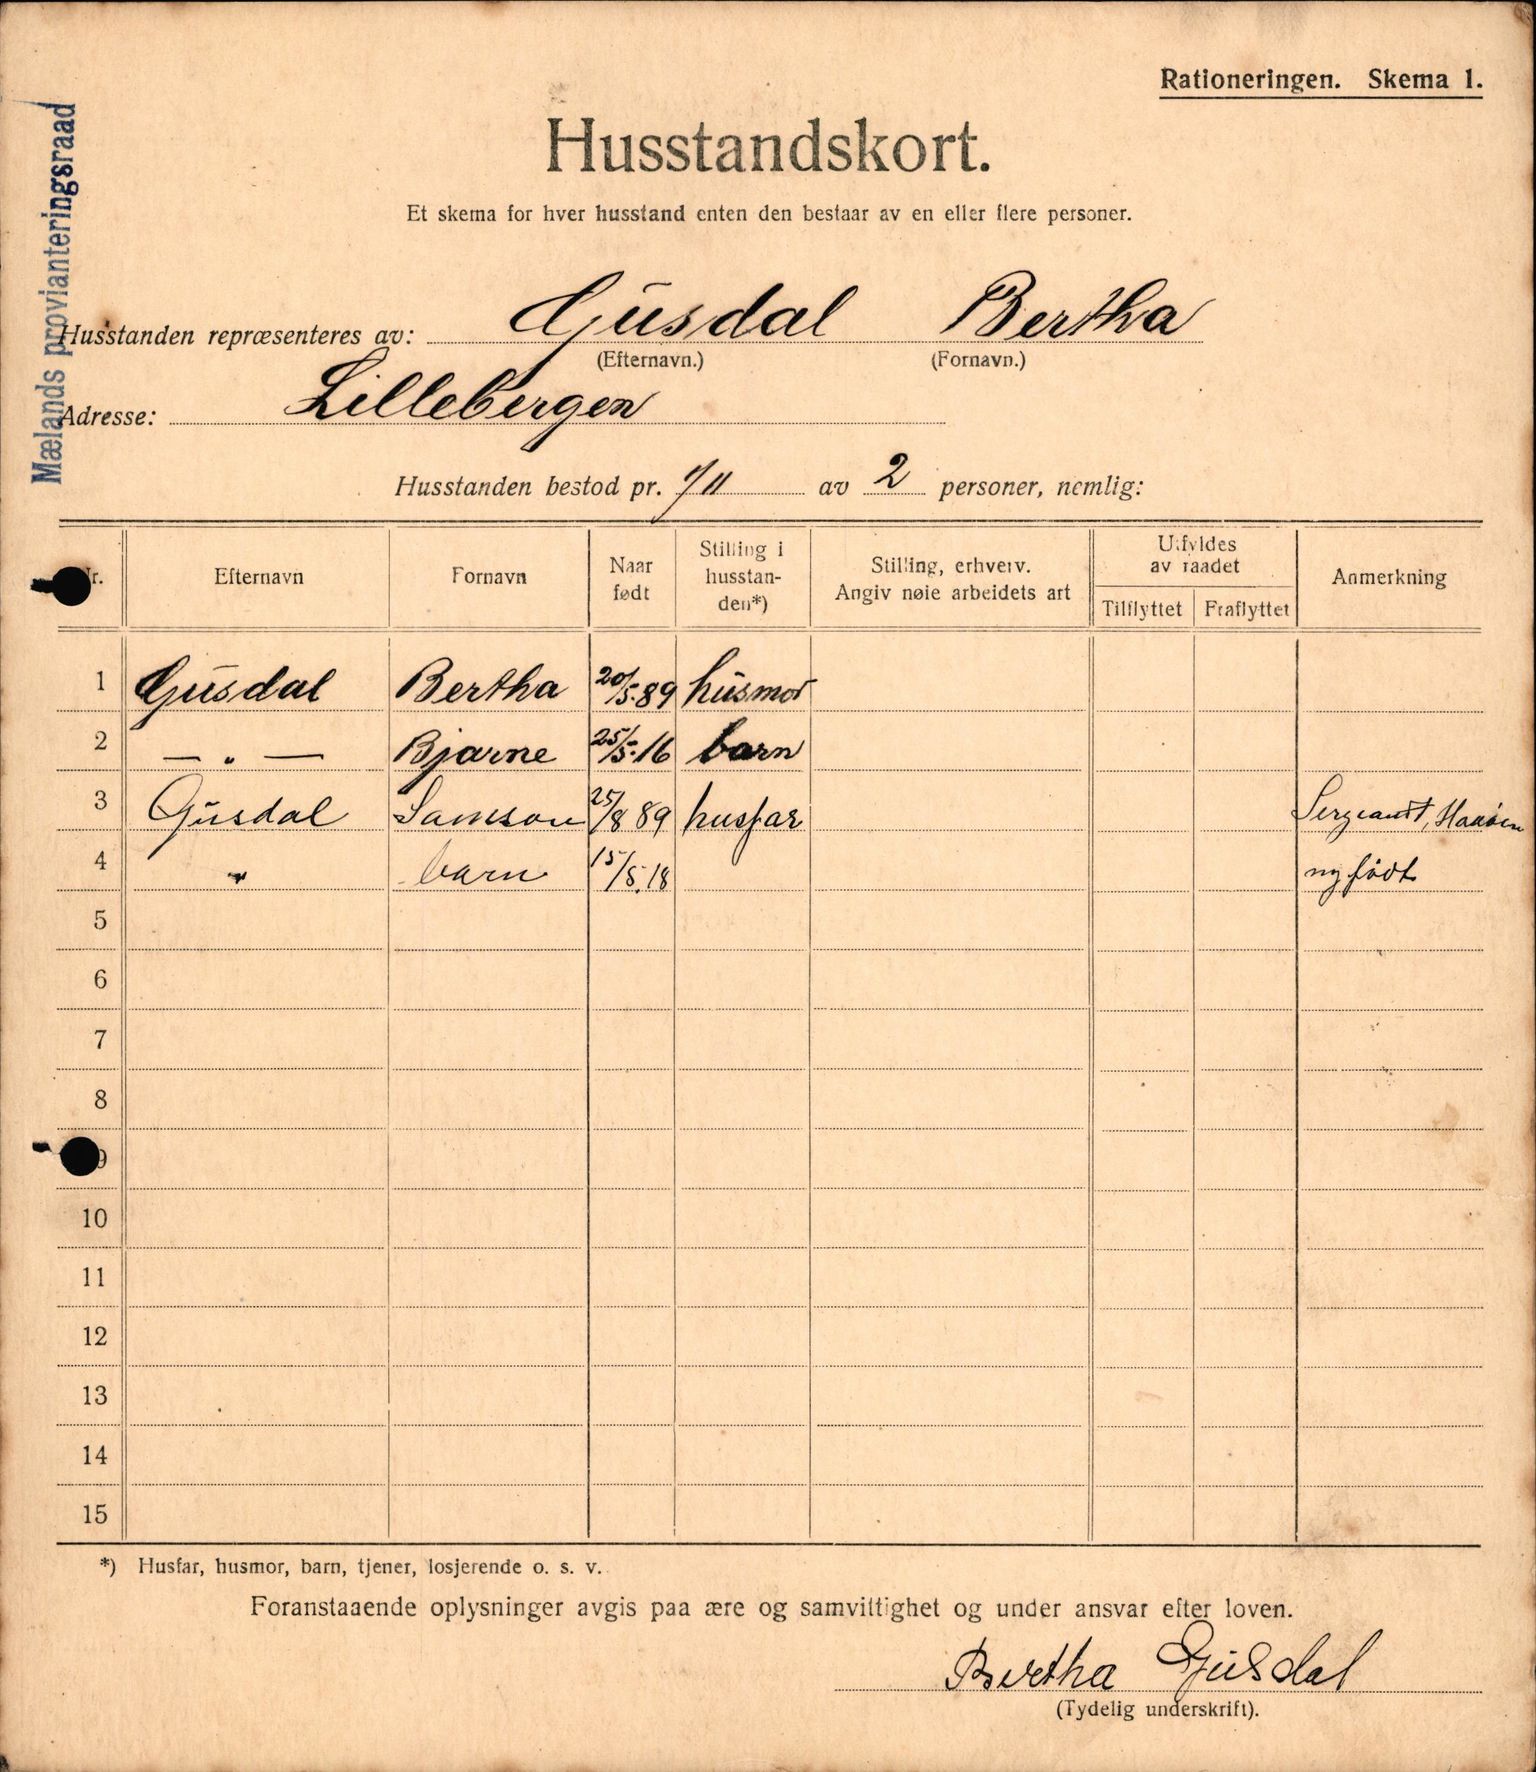 Rationeringen. Skema 1.
Mælands provianteringsraad
Husstandskort.
Et skema for hver husstand enten den bestaar av en eller flere personer.
Husstanden repræsenteres av: Gusdal Bertha
(Efternavn.) (Fornavn.)
Adresse: Lillebergen
Husstanden bestod pr. 1/11 av 2 personer, nemlig:
Nr. Efternavn Fornavn Naar født Stilling i husstanden*) Stilling, erhverv. Angiv nøie arbeidets art Utfyldes av raadet Tilflyttet Fraflyttet Anmerkning
1 Gusdal Bertha 20/5.89 husmor
2 — " — Bjarne 25/5.16 barn
3 Gusdal Samson 25/8 89 husfar Sergeant,
4 " barn 15/5.18 ny født
5
6
7
8
9
10
11
12
13
14
15
*) Husfar, husmor, barn, tjener, losjerende o. s. v.
Foranstaaende oplysninger avgis paa ære og samvittighet og under ansvar efter loven.
Bertha Gusdal
(Tydelig underskrift).